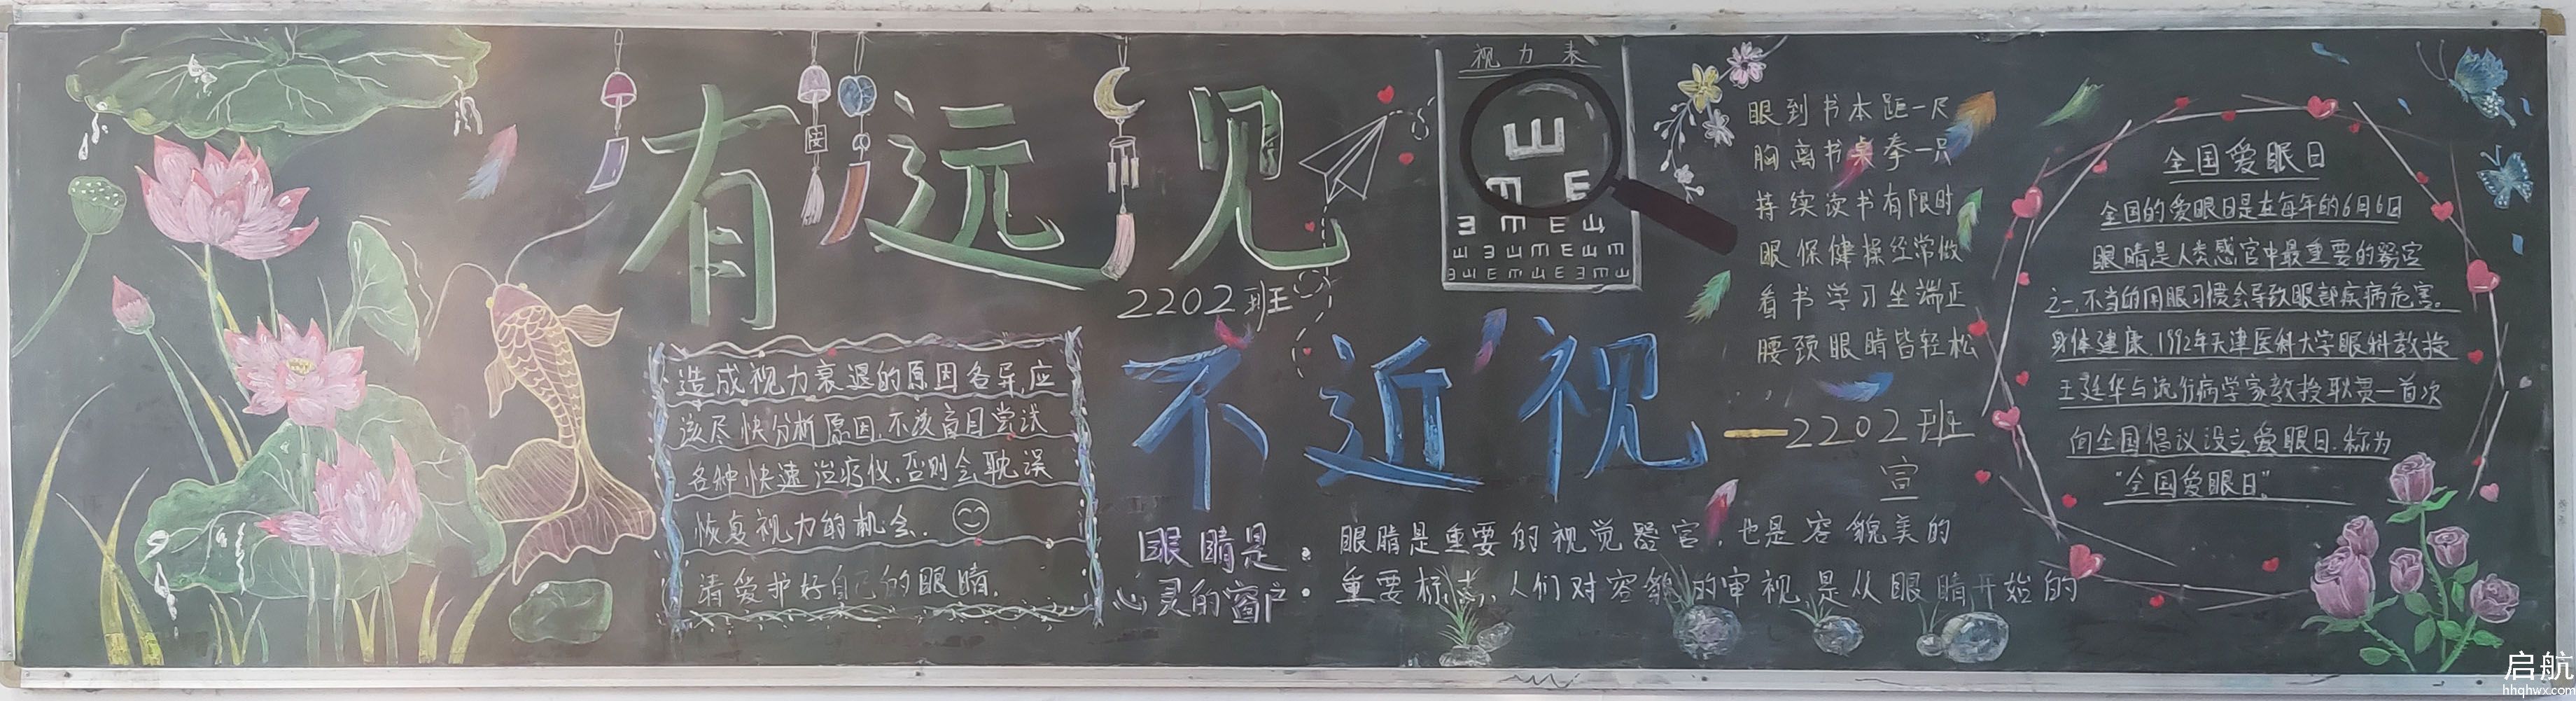 有远见
2202班
不近视
视力表
安
造成视力衰退的原因各异,应
该尽快分析原因,不该盲目尝试
各种快速治疗仪,否则会耽误
恢复视力的机会.
请爱护好自己的眼睛.
眼睛是:
心灵的窗户:
眼睛是重要的视觉器官,也是容貌美的
重要标志,人们对容貌的审视是从眼睛开始的
眼到书本距一尺
胸离书桌拳一只
持续读书有限时
眼保健操经常做
看书学习坐端正
腰颈眼睛皆轻松
——2202班
宣
全国爱眼日
全国的爱眼日是在每年的6月6日
眼睛是人类感官中最重要的器官
之一,不当的用眼习惯会导致眼部疾病危害。
身体健康,1992年天津医科大学眼科教授
王延华与流行病学家教授耿贯一首次
向全国倡议设立爱眼日,称为
“全国爱眼日”
启航
hhqhwx.com